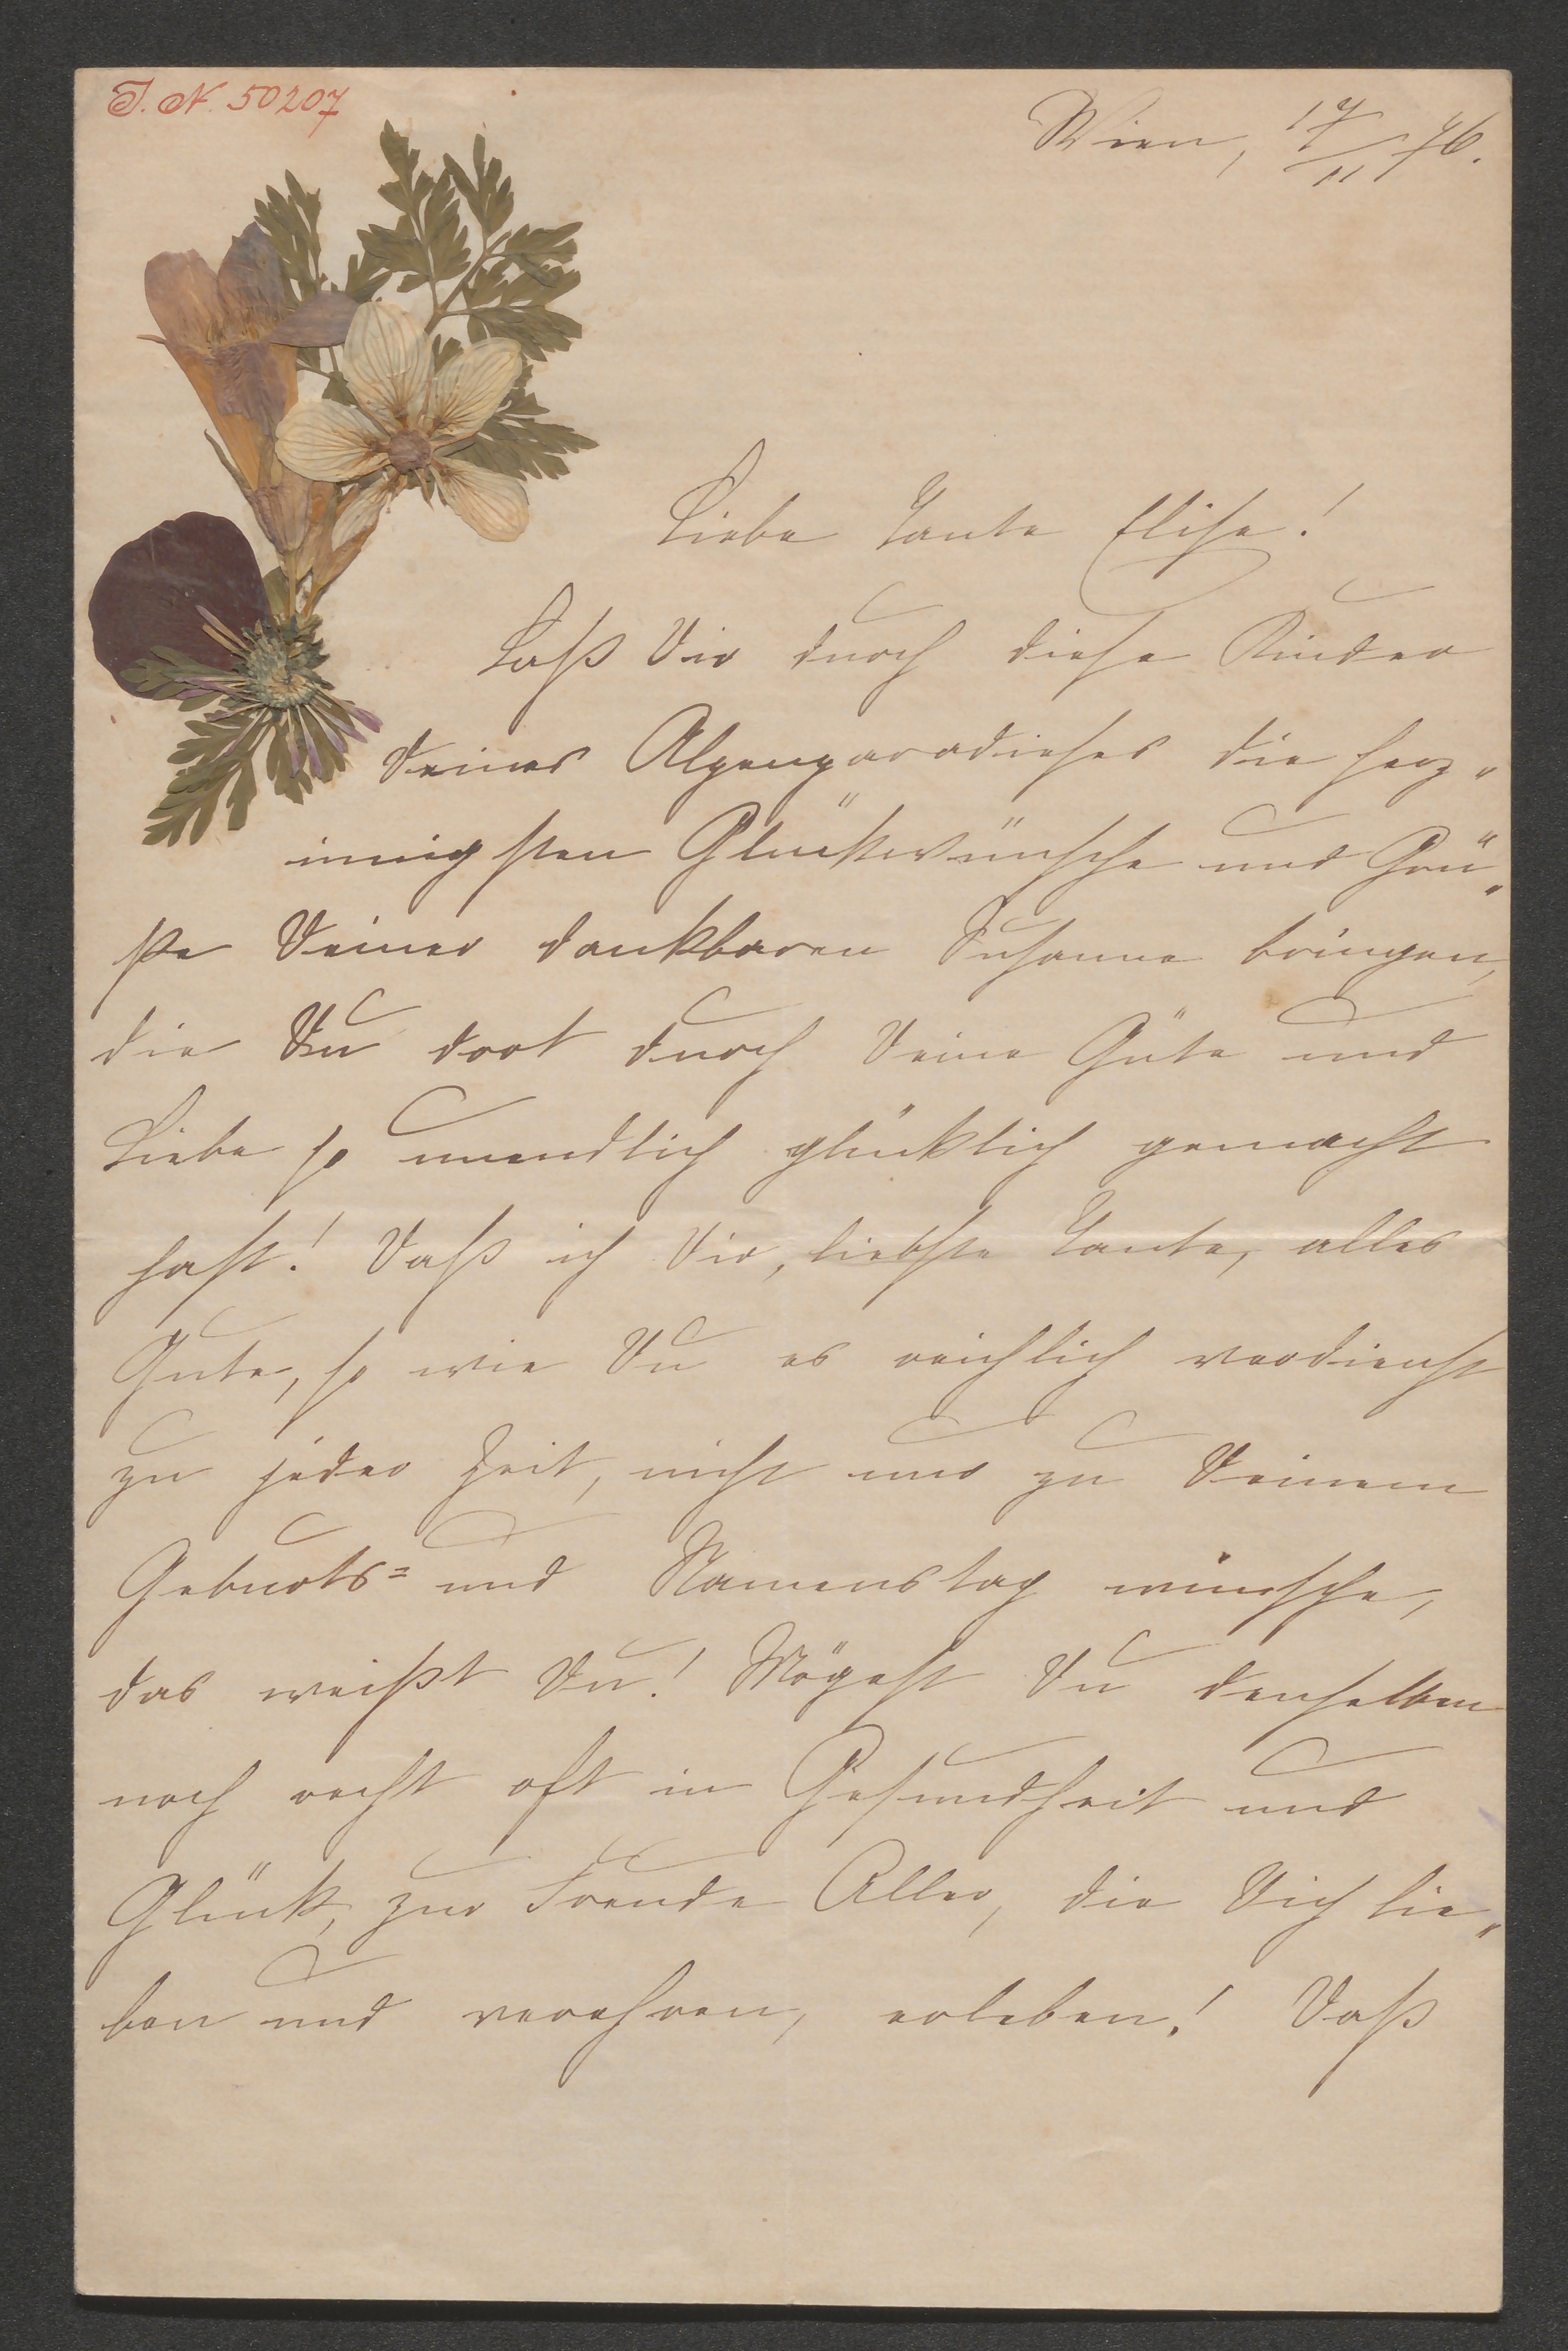 I. N. 50207
Wien, 17/11 76.
Liebe Tante Elise!
Laß Dir durch diese Kinder
Deines Alpenparadieses die herz„
innigsten Glückwünsche und Grü„
ße Deiner dankbaren Susanne bringen,
die Du dort durch Deine Güte und
Liebe so unendlich glücklich gemacht
hast! Daß ich Dir, liebste Tante, alles
Gute, so wie Du es reichlich verdienst
zu jeder Zeit, nicht nur zu Deinem
Geburts= und Namenstag wünsche,
das weißt Du! Mögest Du denselben
noch recht oft in Gesundheit und
Glück, zur Freude Aller, die Dich lie„
ben und verehren, erleben! Daß